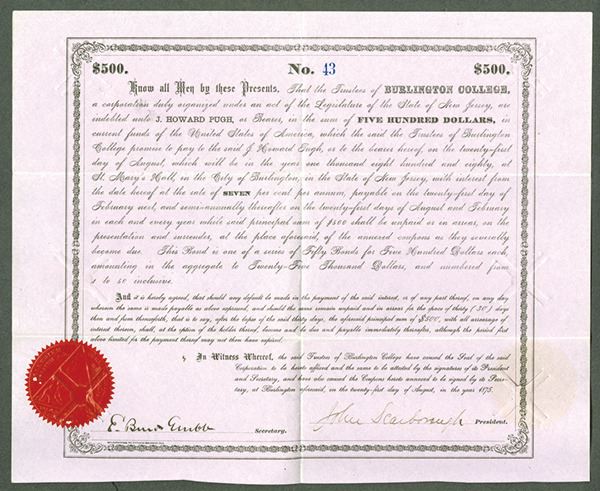 $500. No. 43 $500.
Know all Men by these Presents, That the Trustees of BURLINGTON COLLEGE,
a corporation duly organized under an act of the Legislature of the State of New Jersey, are
indebted unto J. HOWARD PUGH, or Bearer, in the sum of FIVE HUNDRED DOLLARS, in
current funds of the United States of America, which the said the Trustees of Burlington
College promise to pay to the said J. Howard Pugh, or to the bearer hereof, on the twenty-first
day of August, which will be in the year one thousand eight hundred and eighty, at
St. Mary's Hall, in the City of Burlington, in the State of New Jersey, with interest from
the date hereof at the rate of SEVEN per cent per annum, payable on the twenty-first day of
February next, and semi-annually thereafter on the twenty-first days of August and February
in each and every year while said principal sum of $500 shall be unpaid or in arrear, on the
presentation and surrender, at the place aforesaid, of the annexed coupons as they severally
become due. This Bond is one of a series of Fifty Bonds for Five Hundred Dollars each,
amounting in the aggregate to Twenty-Five Thousand Dollars, and numbered from
1 to 50 inclusive.
And it is hereby agreed, that should any default be made in the payment of the said interest, or of any part thereof, on any day
whereon the same is made payable as above expressed, and should the same remain unpaid and in arrear for the space of thirty (30) days
then and from thenceforth, that is to say, after the lapse of the said thirty days, the aforesaid principal sum of $500, with all arrearage of
interest thereon, shall, at the option of the holder thereof, become and be due and payable immediately thereafter, although the period first
above limited for the payment thereof may not then have expired.
In Witness Whereof, the said Trustees of Burlington College have caused the Seal of the said
Corporation to be hereto affixed and the same to be attested by the signatures of its President
and Secretary, and have also caused the Coupons hereto annexed to be signed by its Secre-
tary, at Burlington aforesaid, on the twenty-first day of August, in the year 1875.
E. Burd Grubb Secretary. John Scarborough President.